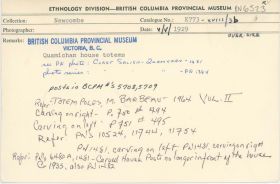 ETHNOLOGY DIVISION—BRITISH COLUMBIA PROVINCIAL MUSEUM
Collection: Newcombe
Catalogue No.: E773-XVIII/36
Photographer:
Date: V/V/1929
BRITISH COLUMBIA PROVINCIAL MUSEUM
VICTORIA, B.C.
Quamichan house totems
see PN photo: Coast Salish - Quamichan - 1481
photo series:
posts are BCPM #s 5708, 5709
Refer: TOTEM POLES, M. BARBEAU 1964 VOL. II
Carving on right - P. 750 # 494
Carving on left - P. 751 # 495
Refer PN's 10524, 11744, 11754
PN 1481, carving on left, PN 1481, carving on right
Refer: PN's 6460A, 1481 - Carved House Posts no longer in front of the house
C 1935, also PN 1482